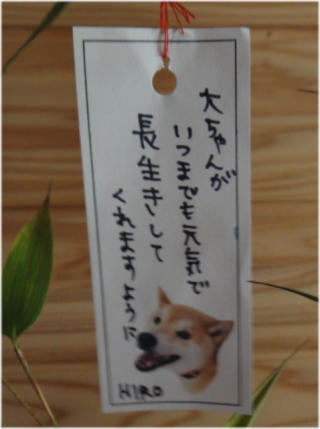 大ちゃんが
いつまでも元気で
長生きして
くれますように
HIRO